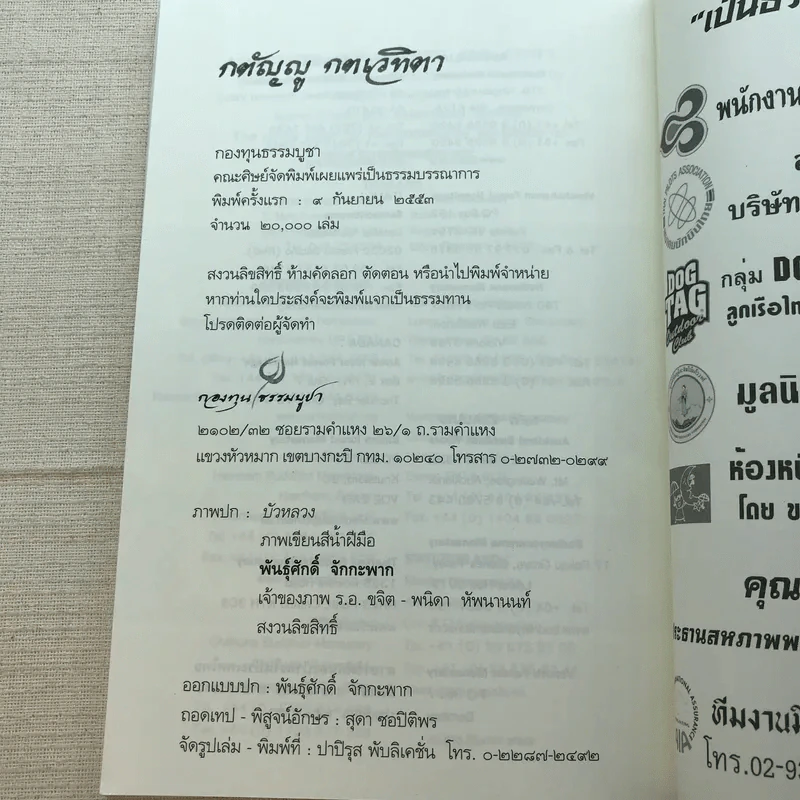 กตัญญู กตเวทิตา
กองทุนธรรมบูชา
คณะศิษย์จัดพิมพ์เผยแพร่เป็นธรรมบรรณาการ
พิมพ์ครั้งแรก : ๙ กันยายน ๒๕๕๓
จำนวน ๒๐,๐๐๐ เล่ม
สงวนลิขสิทธิ์ ห้ามคัดลอก ตัดตอน หรือนำไปพิมพ์จำหน่าย
หากท่านใดประสงค์จะพิมพ์แจกเป็นธรรมทาน
โปรดติดต่อผู้จัดทำ
กองทุนธรรมบูชา
๒๑๐๒/๓๒ ซอยรามคำแหง ๒๖/๑ ถ.รามคำแหง
แขวงหัวหมาก เขตบางกะปิ กทม. ๑๐๒๔๐ โทรสาร ๐-๒๗๓๒-๐๒๙๙
ภาพปก : บัวหลวง
ภาพเขียนสีน้ำฝีมือ
พันธุ์ศักดิ์ จักกะพาก
เจ้าของภาพ ร.อ. ขจิต - พนิดา หัพนานนท์
สงวนลิขสิทธิ์
ออกแบบปก : พันธุ์ศักดิ์ จักกะพาก
ถอดเทป - พิสูจน์อักษร : สุดา ชอปิติพร
จัดรูปเล่ม - พิมพ์ที่ : ปาปิรุส พับลิเคชั่น โทร. ๐-๒๒๘๗-๒๔๙๒
"เป็นธร
พนักงาน
บริษัท
DOG
TAG
Outdoor
Club
กลุ่ม DO
ลูกเรือไท
มูลนิ
ห้องหนั
โดย ข
คุณ
ระธานสหภาพพ
ทีมงานมิ
โทร.02-93